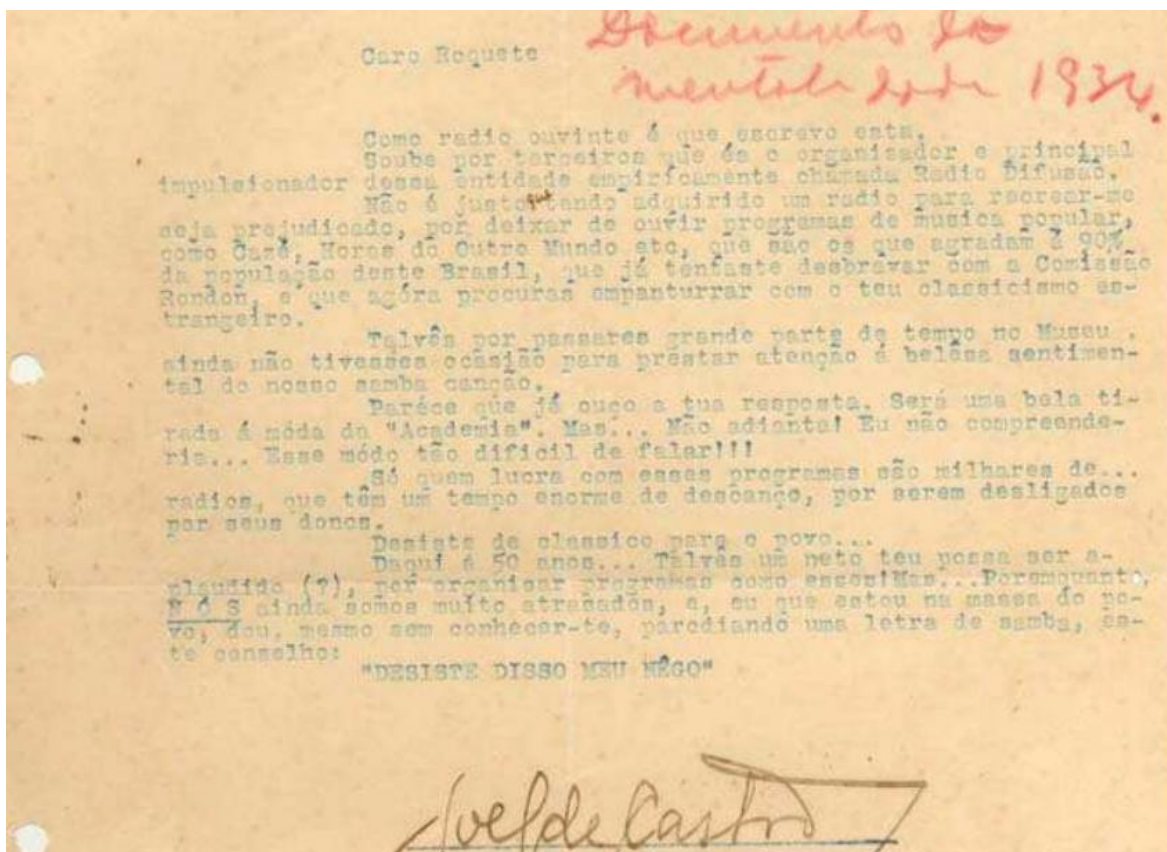 Documento da
mentalidade 1934.
Caro Roquete
Como radio ouvinte é que escrevo esta.
Soube por terceiros que és o organisador e principal
impulsionador dessa entidade empiricamente chamada Radio Difusão.
Não é justo que tendo adquirido um radio para recrear-me
seja prejudicado, por deixar de ouvir programas de musica popular,
como Cazé, Horas do Outro Mundo etc, que são os que agradam á 90%
da população deste Brasil, que já tentaste desbravar com a Comissão
Rondon, e que agóra procuras empanturrar com o teu classicismo es-
trangeiro.
Talvês por passares grande parte de tempo no Museu .
ainda não tivesses ocasião para prestar atenção á belêsa sentimen-
tal do nosso samba canção.
Paréce que já ouço a tua resposta. Será uma bela ti-
rada á móda da "Academia". Mas... Não adianta! Eu não compreende-
ria... Esse módo tão dificil de falar!!!
Só quem lucra com esses programas são milhares de...
radios, que têm um tempo enorme de descanço, por serem desligados
por seus donos.
Desiste de classico para o povo...
Daqui á 50 anos... Talvês um neto teu possa ser a-
plaudido (?), por organisar programas como esses!Mas...Poremquanto,
N Ó S ainda somos muito atrasados, e, eu que estou na massa do po-
vo, dou, mesmo sem conhecer-te, parodiando uma letra de samba, es-
te conselho:
"DESISTE DISSO MEU NÊGO"
de Castro